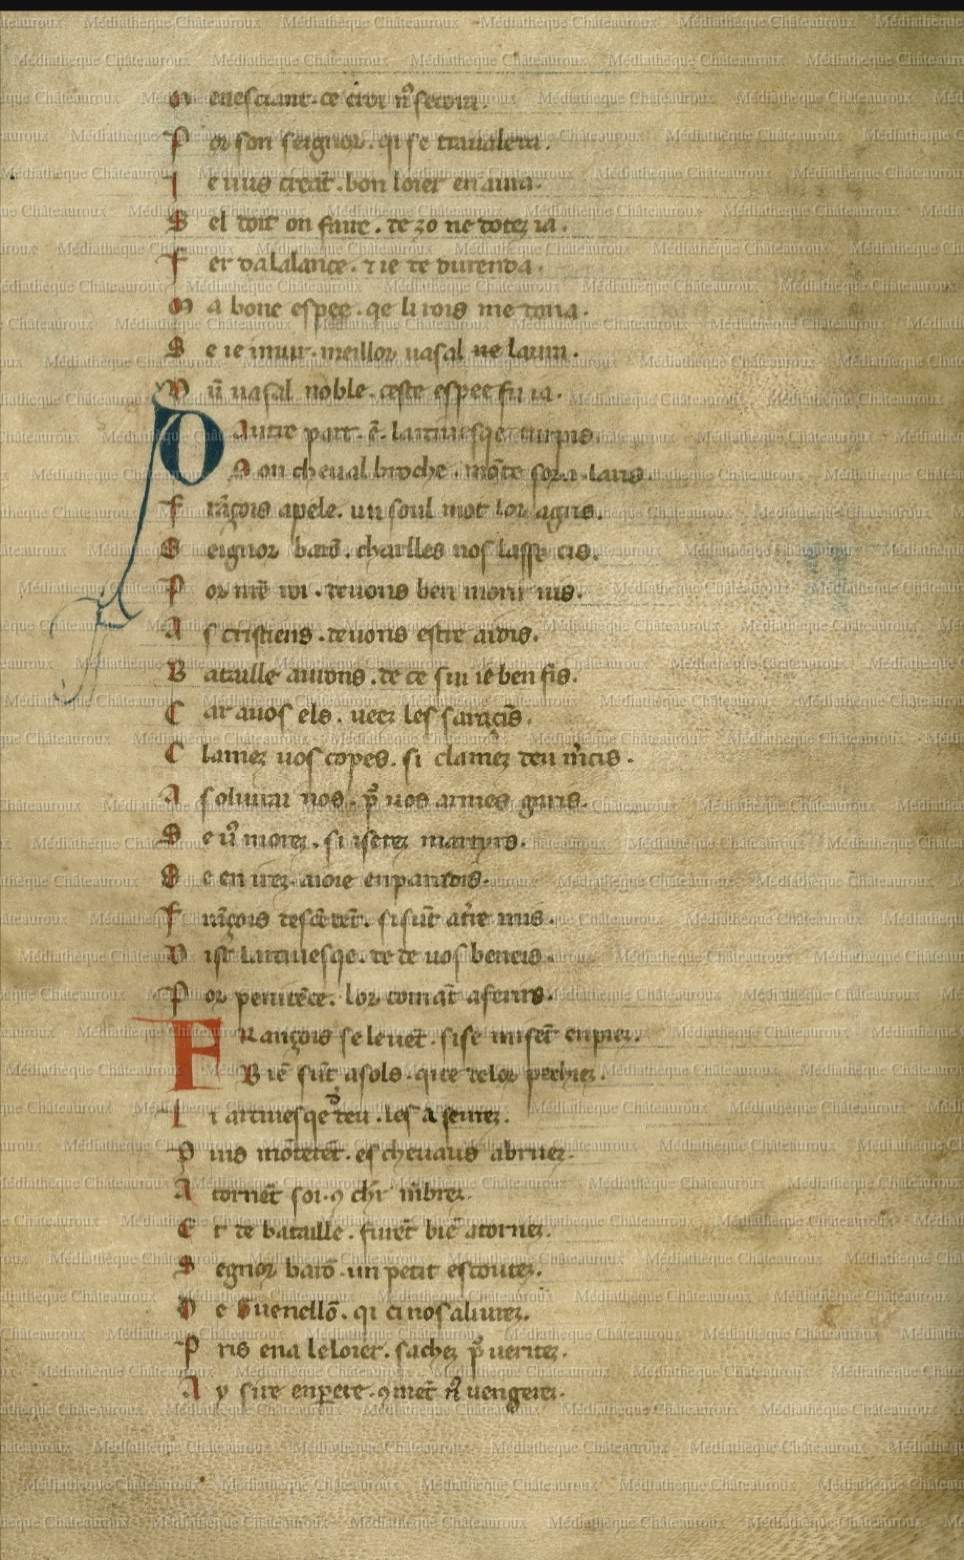 M eiesciant. ce croi nꝰ secora.
P or son seignor. qi se traualera.
I e uus creāt. bon loier en aura.
S el doit on faire. de zo ne dotez ia.
F er da la lance. ⁊ ie de durenda.
M a bone espee. qe li rois me dona.
S e ie muir. meillor uasal ne laura.
D ū uasal noble. ceste espee fu ia.
D Autre part. ē. larciuesqe turpis.
S on cheual broche. mōte sor .i. laris.
F rāçois apele. un soul mot lor a gius.
S eignor barō. charlles nos lasse cis.
P or nr̄e roi. deuons ben morir uis.
A s cristiens. deuons estre aidis.
B ataille aurons. de ce sui ie ben fis.
C ar a uos els. ueez les saraçīs.
C lamez uos copes. si clamez deu m̄cis.
A soluirai uos. pꝰ uos armes garis.
S e uꝰ morez. si iserez martyrs.
S e en irez. a ioie en paradis.
F rāçois descēdēt. si sūt a t̄re mis.
D ist larciuesqe. de de uos beneis.
P or penitēce. lor comāt a ferirs.
F Rançois se leuēt. si se misēt en piez.
B iē sūt asols. quite de lor pechiez.
L i arciuesqe d̄ deu. les a seinez.
P uis mōterēt. es cheuaus abriuez.
A tornēt soi. ꝯ chr̄ mēbrez.
E t de bataille. furēt biē atornez.
S egnor barō. un petit escoutez.
D e Guenellō. qi ci nos a liurez.
P ris en a le loier. sachez pꝰ ueritez.
A y sire enperere. ꝯmēt nꝰ uengerez.